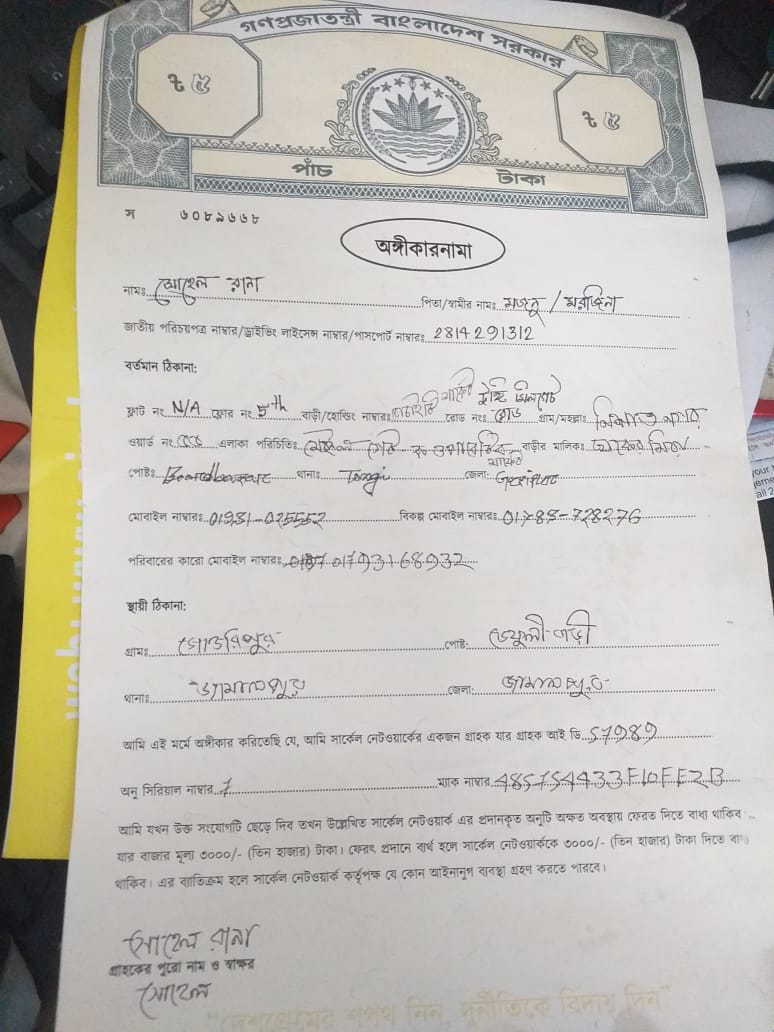 গণপ্রজাতন্ত্রী বাংলাদেশ সরকার
৳ ৫ ৳ ৫
পাঁচ টাকা
স ৬০৮৯৬৬৮
অঙ্গীকারনামা
নামঃ সোহেল রানা পিতা/স্বামীর নামঃ মজনু / মরজিনা
জাতীয় পরিচয়পত্র নাম্বার/ড্রাইভিং লাইসেন্স নাম্বার/পাসপোর্ট নাম্বারঃ 2814291312
বর্তমান ঠিকানা:
ফ্লাট নং N/A ফ্লোর নং 5th বাড়ী/হোল্ডিং নাম্বারঃ রোড নংঃ রোড গ্রাম/মহল্লাঃ
ওয়ার্ড নং এলাকা পরিচিতিঃ বাড়ীর মালিকঃ
পোষ্টঃ Boardbazar থানাঃ Tongi জেলা: Gazipur
মোবাইল নাম্বারঃ 01931-025552 বিকল্প মোবাইল নাম্বারঃ 01788-728276
পরিবারের কারো মোবাইল নাম্বারঃ 01793168932
স্থায়ী ঠিকানা:
গ্রামঃ পোষ্ট:
থানাঃ জামালপুর জেলা: জামালপুর
আমি এই মর্মে অঙ্গীকার করিতেছি যে, আমি সার্কেল নেটওয়ার্কের একজন গ্রাহক যার গ্রাহক আই ডি 57989
অনু সিরিয়াল নাম্বার 1 ম্যাক নাম্বার 485754433F10FE2B
আমি যখন উক্ত সংযোগটি ছেড়ে দিব তখন উল্লেখিত সার্কেল নেটওয়ার্ক এর প্রদানকৃত অনুটি অক্ষত অবস্থায় ফেরত দিতে বাধ্য থাকিব
যার বাজার মূল্য ৩০০০/- (তিন হাজার) টাকা। ফেরৎ প্রদানে ব্যর্থ হলে সার্কেল নেটওয়ার্ককে ৩০০০/- (তিন হাজার) টাকা দিতে বাধ্য
থাকিব। এর ব্যতিক্রম হলে সার্কেল নেটওয়ার্ক কর্তৃপক্ষ যে কোন আইনানুগ ব্যবস্থা গ্রহণ করতে পারবে।
সোহেল রানা
গ্রাহকের পুরো নাম ও স্বাক্ষর
সোহেল
"দেশপ্রেমের শপথ নিন, দুর্নীতিকে বিদায় দিন"